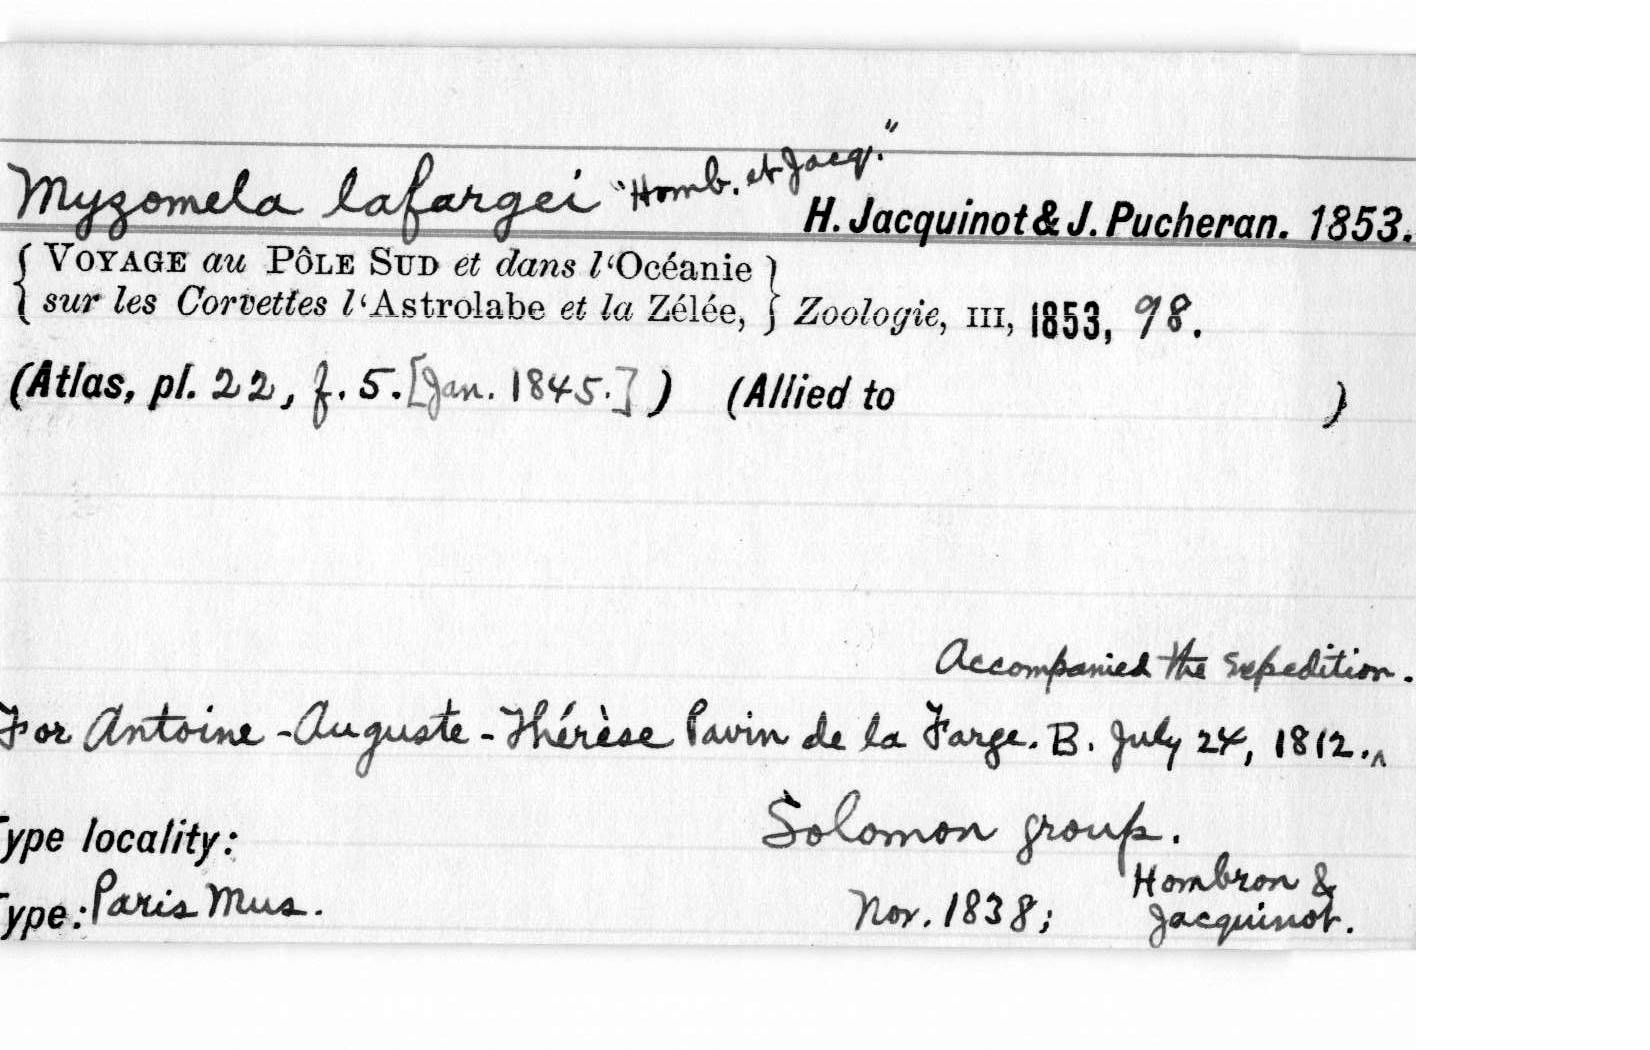 Myzomela lafargei "Homb. et Jacq." H. Jacquinot & J. Pucheran. 1853.
{ VOYAGE au PÔLE SUD et dans l'Océanie }
{ sur les Corvettes l'Astrolabe et la Zélée, } Zoologie, III, 1853, 98.
(Atlas, pl. 22, f. 5. [Jan. 1845.] ) (Allied to )
Accompanied the expedition.
For Antoine-Auguste-Thérèse Pavin de la Farge. B. July 24, 1812.^
Type locality: Solomon group.
Type: Paris Mus. Nov. 1838; Hombron &
Jacquinot.